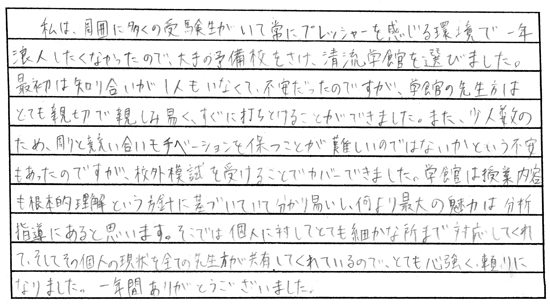 私は、周囲に多くの受験生がいて常にプレッシャーを感じる環境で一年
浪人したくなかったので、大きな予備校をさけ、清流学館を選びました。
最初は知り合いが1人もいなくて、不安だったのですが、学館の先生方は
とても親切で親しみ易く、すぐに打ちとけることができました。また、少人数の
ため、周りと競い合いモチベーションを保つことが難しいのではないかという不安
もあったのですが、校外模試を受けることでカバーできました。学館は授業内容
も根本的理解という方針に基づいていて分かり易いし、何より最大の魅力は分析
指導にあると思います。そこでは個人に対してとても細かな所まで対応してくれ
て、そしてその個人の現状を全ての先生方が共有してくれているので、とても心強く、頼りに
なりました。一年間ありがとうございました。